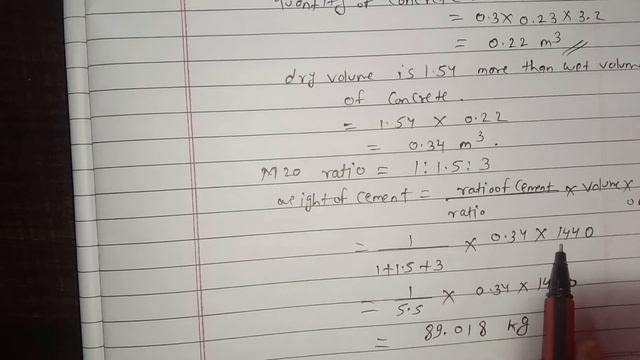 Quantity of Concrete
= 0.3 × 0.23 × 3.2
= 0.22 m³
dry volume is 1.54 more than wet volum
of Concrete.
= 1.54 × 0.22
= 0.34 m³.
M20 ratio = 1:1.5:3
weight of cement = ratio of Cement × Volume ×
ratio
= 1 × 0.34 × 1440
1+1.5+3
= 1 × 0.34 × 14
5.5
= 89.018 kg